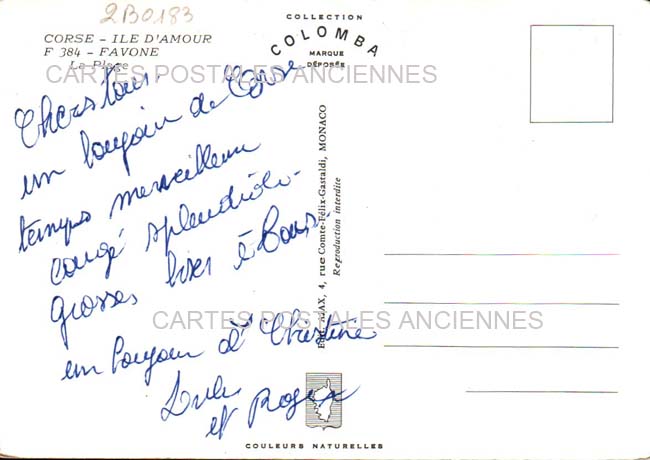 2B0183
COLLECTION
COLOMBA
MARQUE
DÉPOSÉE
CORSE - ILE D'AMOUR
F 384 - FAVONE
La Plage
CARTES POSTALES ANCIENNES
Chers tous.
un bonjour de Corse
temps merveilleux
congé splendide.
grosses bises à tous.
CARTES POSTALES ANCIENNES
un bonjour à Christine
et Roger
4, rue Comte-Félix-Gastaldi, MONACO
Reproduction interdite
COULEURS NATURELLES